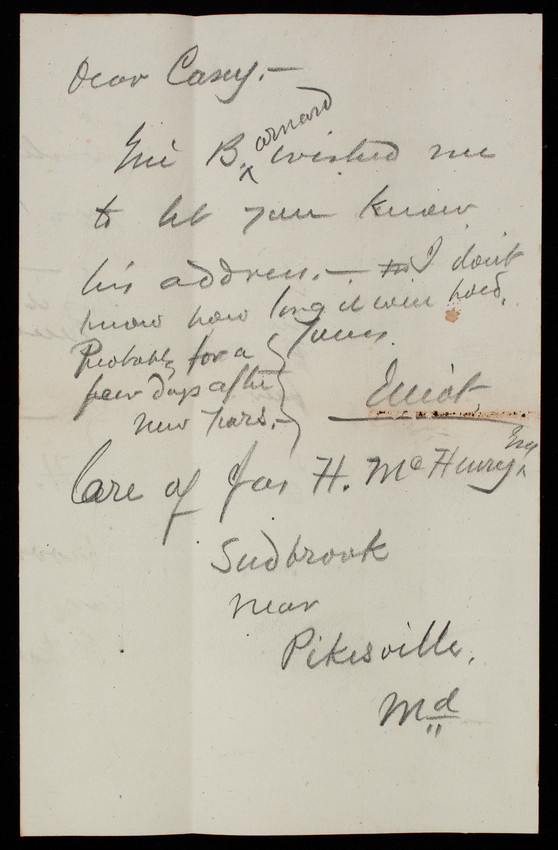 Dear Casey,—
Mr B.^arnard wished me
to let you know
his address.— I don't
know how long it will hold,
Probably for a
few days after
New Years.—
Yours.
Eliot
Care of Jas H. McHenry, Esq
Sudbrook
near
Pikesville,
Md